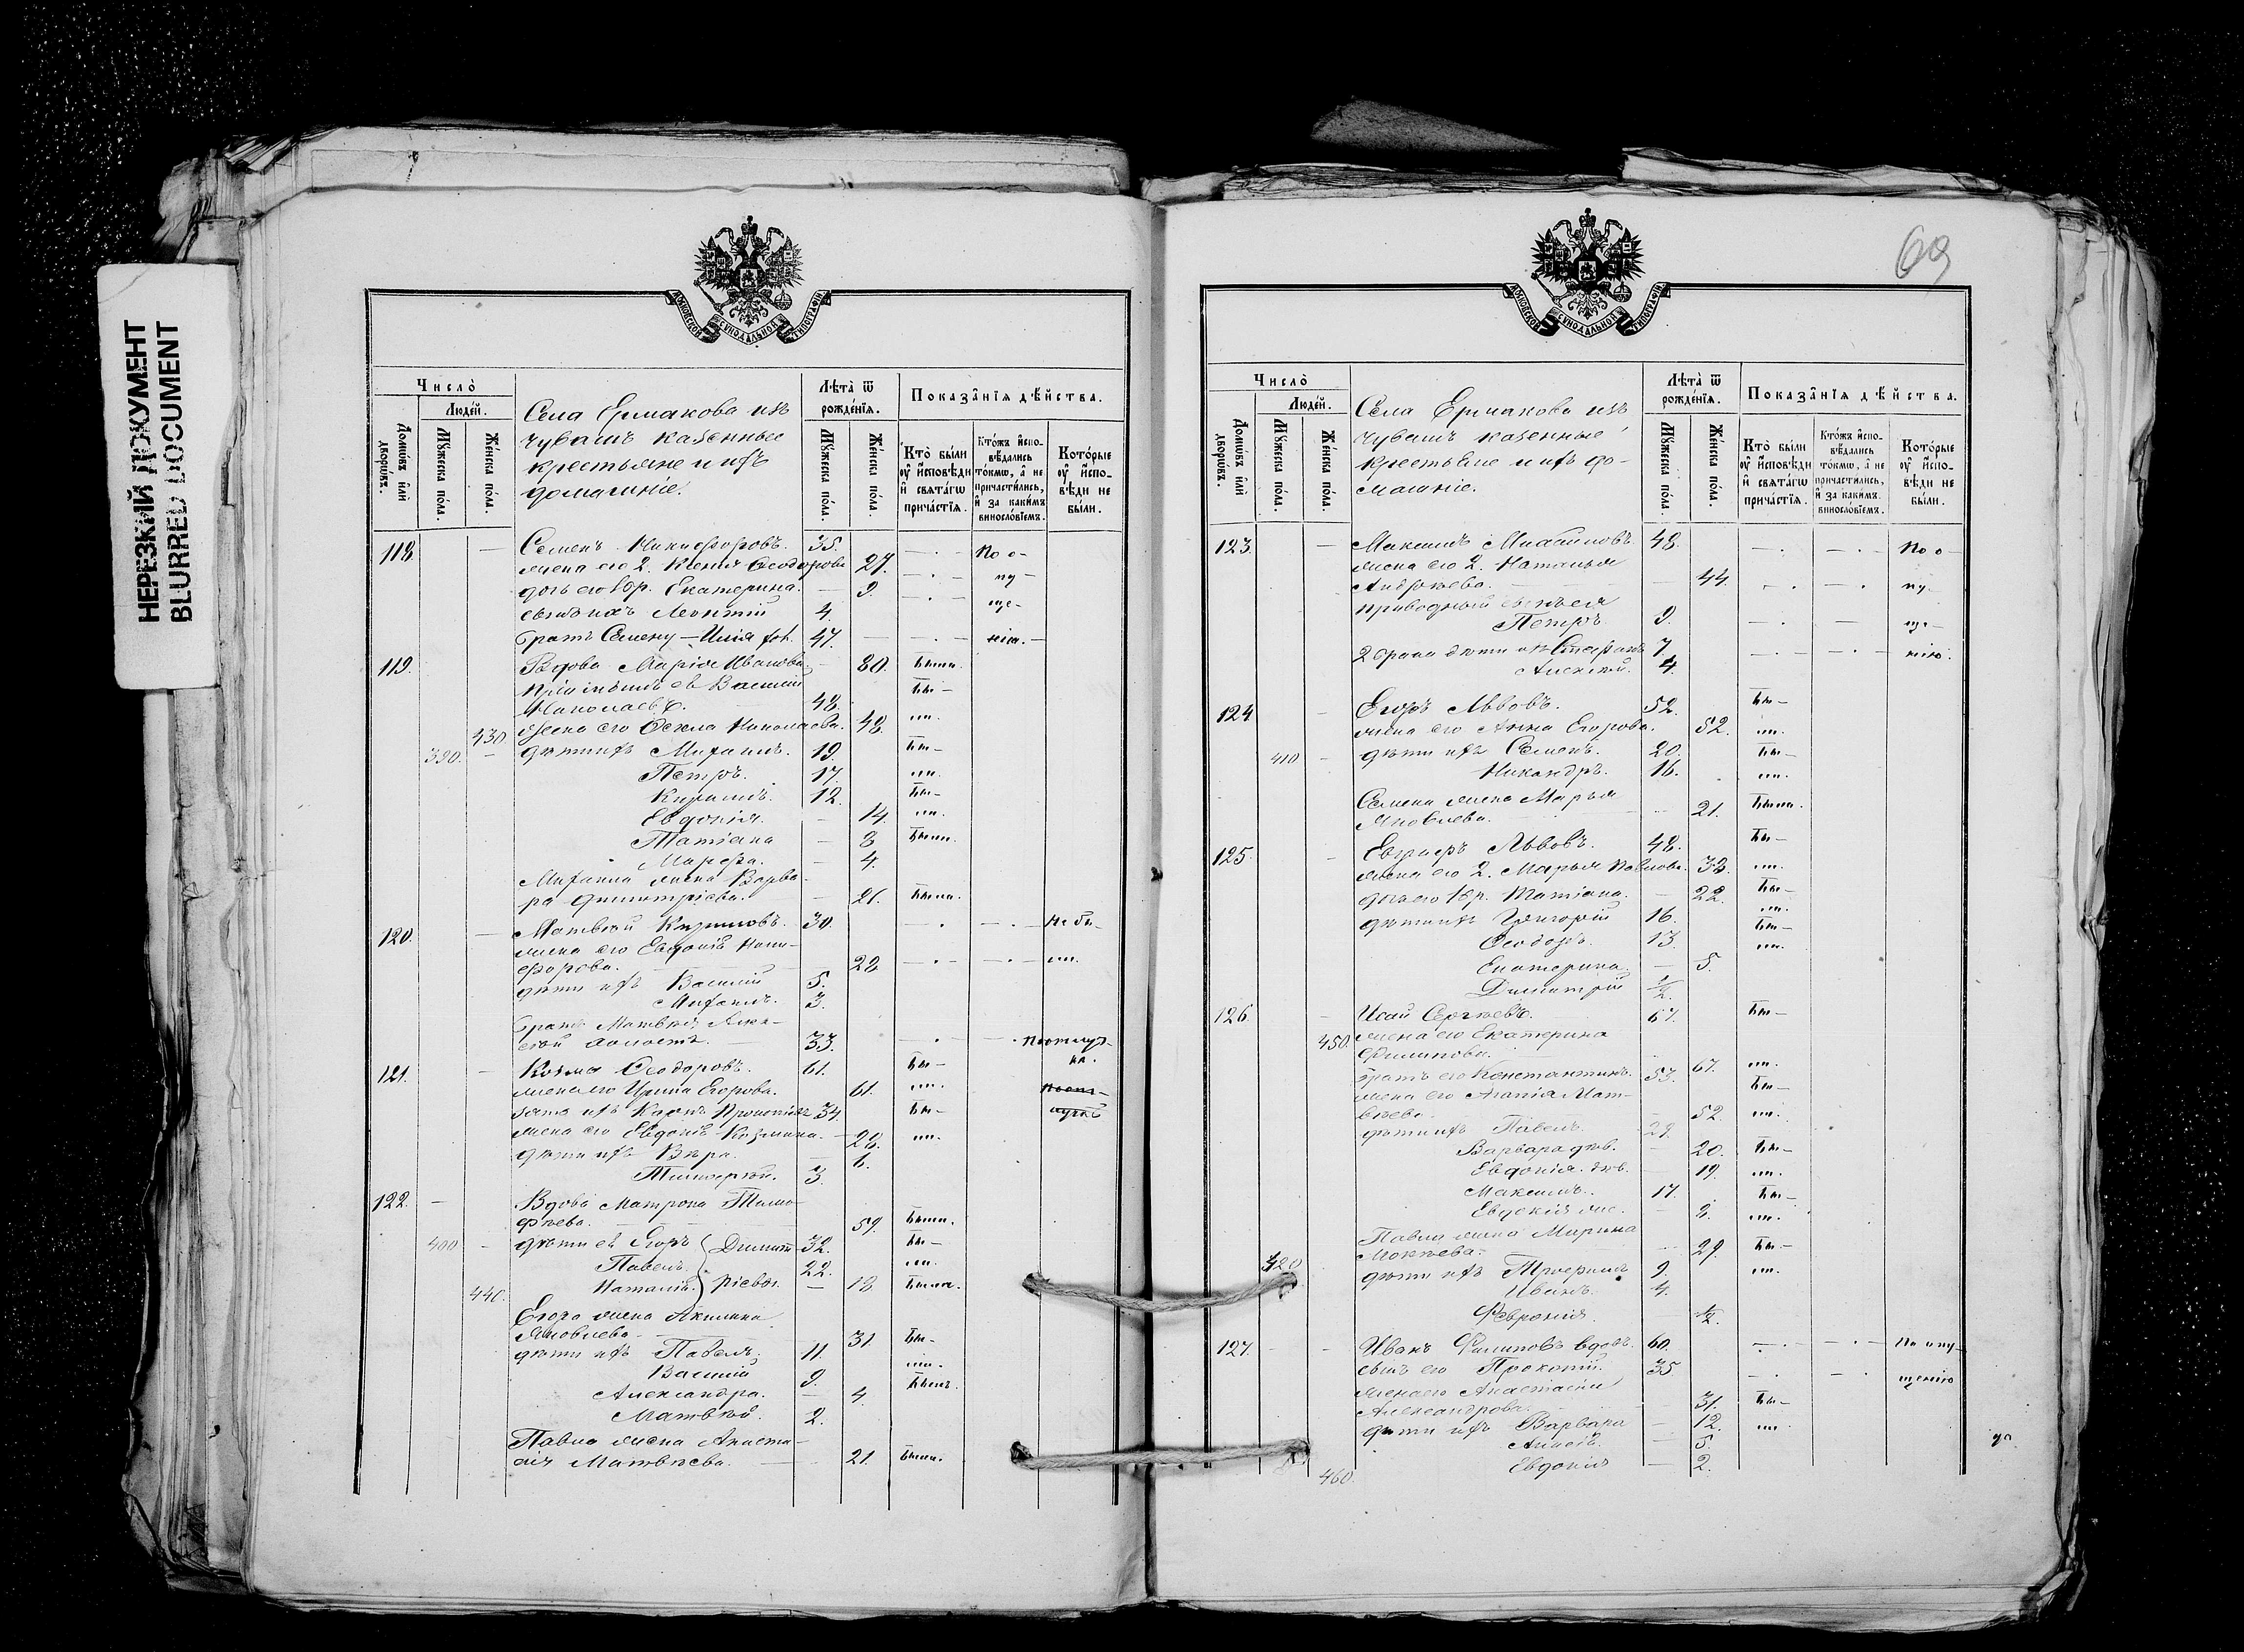 НЕРЕЗКИЙ ДОКУМЕНТ
BLURRED DOCUMENT
МОСКОВСКОЙ СѴНОДАЛЬНОЙ ТИПОГРАФІИ
Число̀
Люде́й.
Домѡ́въ и҆лѝ дворѡ́въ.
Мꙋ́жеска по́ла.
Же́нска по́ла.
Села Ермакова изъ
чувашъ казенные
крестьяне и ихъ
домашніе.
Лѣта̀ ѿ рожде́нїѧ.
Мꙋ́жеска по́ла.
Же́нска по́ла.
Показа̂нїѧ дѣ́йства.
Кто̀ бы́ли ᲂу҆ и҆сповѣ́ди и҆ свѧта́гѡ прича́стїѧ.
Кто́жъ и҆сповѣ́дались то́кмѡ, а҆ не причасти́лись, и҆ за каки́мъ винослѡ́вїемъ.
Кото́рые ᲂу҆ и҆сповѣ́ди не бы́ли.
118. Семенъ Никифоровъ. 35. По о-
жена его 2. Ксенія Ѳеодорова 27. пу-
дочь его 1 бр. Екатерина. 9. ще-
Леонтій 4.
братъ Семену — Илія 47. нію.
119. Вдова Марія Иванова 80. была.
Василій
Николаевъ. 48. бы-
жена его Ѳекла Николаева. 48. ли.
430.
390. дѣти ихъ Михаилъ. 19. бы-
Петръ. 17. ли.
Кириллъ. 12. бы-
Евдокія. 14. ли.
Татіана 8 были.
Марѳа. 4.
Михаила жена Варва-
ра Димитріева. 21. была.
120. Матвѣй Кириловъ. 30. Не бы-
жена его Евдокія Ники-
форова. 28 ли.
дѣти ихъ Василій 5.
Михаилъ. 3.
братъ Матвѣя Алек-
сѣй холостъ. 33. по отлуч-
ке.
121. Козма Ѳеодоровъ. 61. бы-
жена его Ирина Егорова. 61. ли.
зять ихъ Карпъ Прокопіевъ 34. бы-
жена его Евдокія Козмина. 28. ли.
дѣти ихъ Вѣра. 6.
Тимоѳей. 3.
122. Вдова Матрона Тимо-
ѳѣева. 59. была.
400 дѣти ея Егоръ Димит- 32. бы-
Павелъ. 22. ли.
Наталія. ріевы. 18 была.
440.
Егора жена Акилина
Яковлева. 31. бы-
дѣти ихъ Павелъ. 11. ли.
Василій 9. былъ.
Александра. 4.
Матвѣй. 2.
Павла жена Анаста-
сія Матвѣева. 21. была.
69
МОСКОВСКОЙ СѴНОДАЛЬНОЙ ТИПОГРАФІИ
Число̀
Люде́й.
Домѡ́въ и҆лѝ дворѡ́въ.
Мꙋ́жеска по́ла.
Же́нска по́ла.
Села Ермакова изъ
чувашъ казенные
крестьяне и ихъ до-
машніе.
Лѣта̀ ѿ рожде́нїѧ.
Мꙋ́жеска по́ла.
Же́нска по́ла.
Показа̂нїѧ дѣ́йства.
Кто̀ бы́ли ᲂу҆ и҆сповѣ́ди и҆ свѧта́гѡ прича́стїѧ.
Кто́жъ и҆сповѣ́дались то́кмѡ, а҆ не причасти́лись, и҆ за каки́мъ винослѡ́вїемъ.
Кото́рые ᲂу҆ и҆сповѣ́ди не бы́ли.
123. Максимъ 48. По о-
жена его 2. Наталья
44. пу-
приводный
Петръ 9. ще-
2 брака дѣти ихъ Стефанъ 7. нію.
Алексѣй. 4.
124 Егоръ Львовъ. 52. бы-
жена его Анна Егорова. 52. ли.
410 дѣти ихъ Семенъ. 20. бы-
Никандръ. 16. ли.
Семена жена Марья
Яковлева. 21. была.
125. Львовъ. 48. бы-
жена его 2. Марья Павлова. 33. ли.
дочь его 1 бр. Татіана. 22. бы-
ли.
дѣти ихъ Григорій 16. бы-
Ѳеодоръ. 13. ли.
Екатерина. 5.
Димитрій ½.
126 Исай Сергѣевъ. 67. бы-
450. жена его Екатерина
Филипова. 67. ли.
братъ его Константинъ. 53. бы-
жена его Агапія Мат-
вѣева. 52. ли.
дѣти ихъ Павелъ. 29.
Варвара дѣв. 20. бы-
Евдокія дѣв. 19. ли.
Максимъ. 17. бы-
8. ли.
Павла жена Марина
Мокѣева. 29. бы-
420 дѣти ихъ 9. ли.
Иванъ. 4.
Февронія ½.
127. Иванъ Филиповъ вдовъ. 60. По опу-
сынъ его Прокопій. 35 щенію
жена его Анастасія
Александрова. 31. бы-
дѣти ихъ Варвара 12. ли.
5.
Евдокія 2.
460.